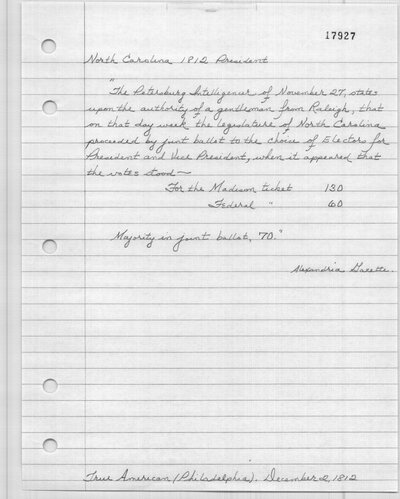 17927
North Carolina 1812 President
"The Petersburg Intelligencer of November 27, states
upon the authority of a gentleman from Raleigh, that
on that day week the legislature of North Carolina
proceeded by joint ballot to the choice of Electors for
President and Vice President, when it appeared that
the votes stood—
For the Madison ticket 130
Federal " 60
Majority in joint ballot, 70."
Alexandria Gazette.
True American (Philadelphia). December 2, 1812